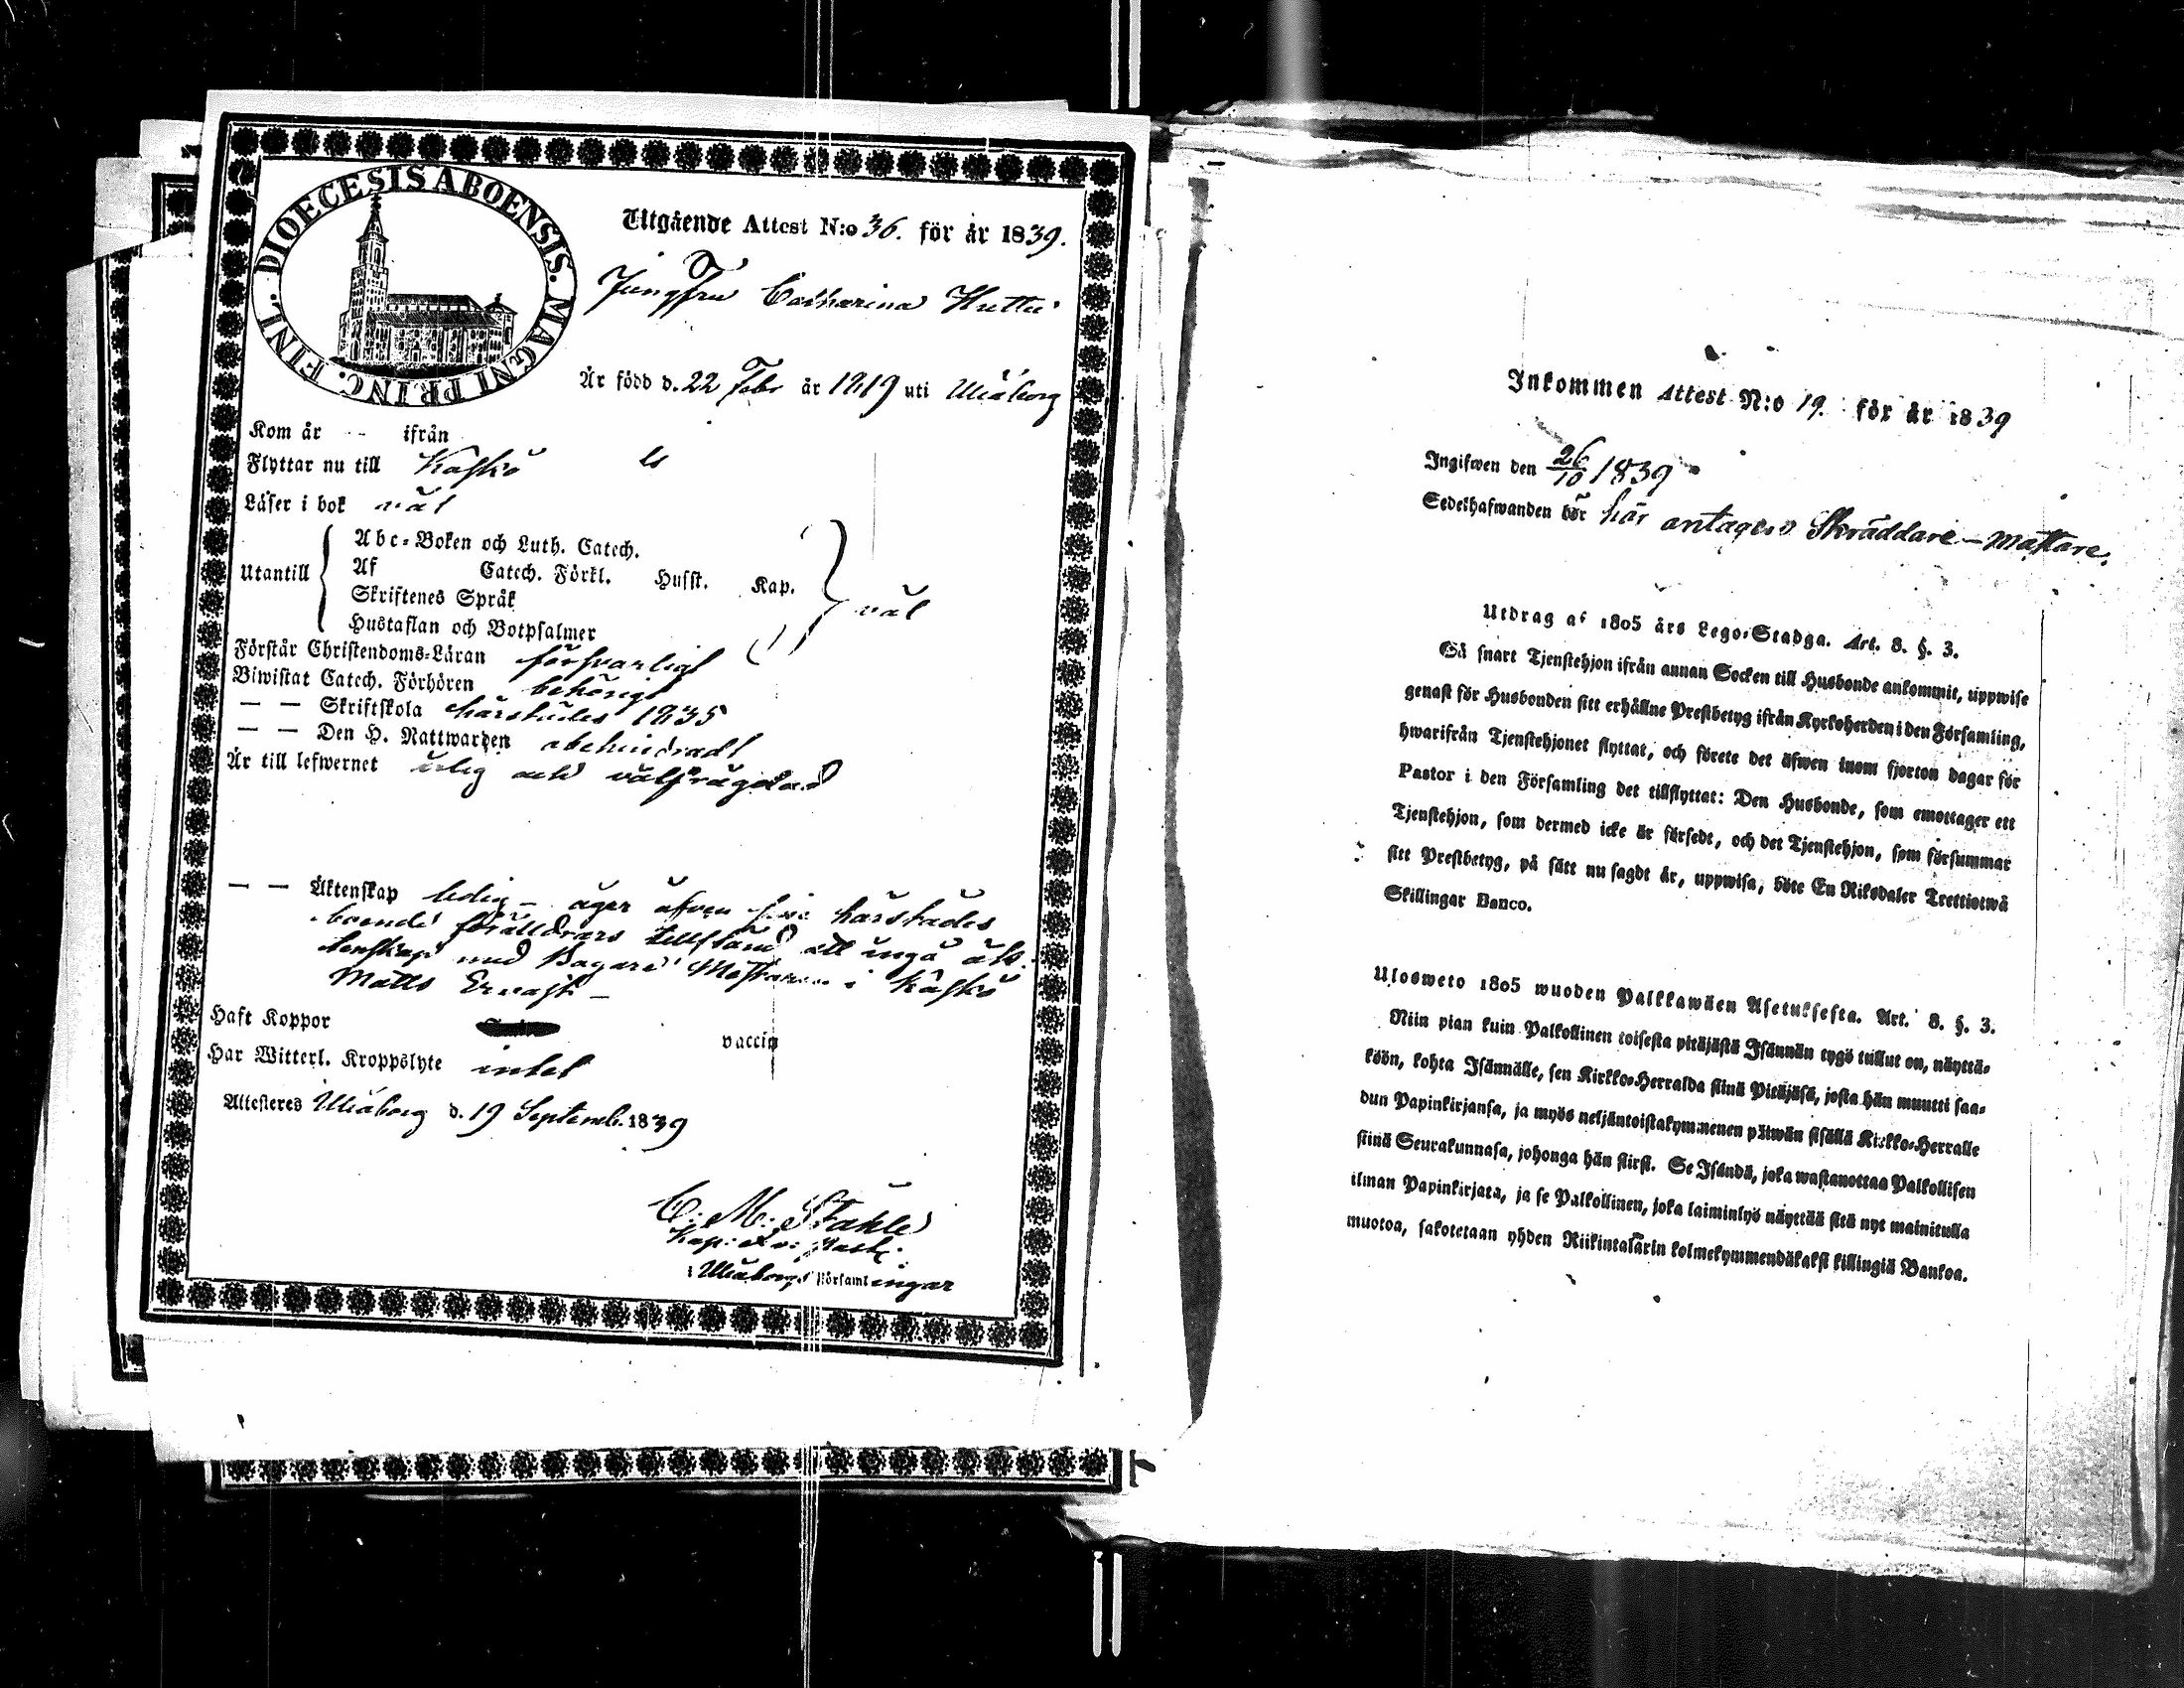 DIOECESIS ABOENSIS. MAGNI PRINC. FINL.
Utgående Attest N:o 36. för år 1839.
Jungfru Catharina Huttu
Är född d. 22 Febr år 1819 uti Uleåborg
Kom år -- ifrån
Flyttar nu till Kaskö
Läser i bok väl
Utantill
Abc-Boken och Luth. Catech.
Af Catech. Förkl. Hufst. Kap.
Skriftenes Språk
Hustaflan och Botpsalmer
väl
Förstår Christendoms-Läran försvarligt
Biwistat Catech. Förhören behörigt
— — Skriftskola härstädes 1835
— — Den H. Nattwarden obehindradt
Är till lefwernet ärlig och välfrägdad
— — Äktenskap ledig - äger äfven sine härstädes
boende föräldrars tillstånd att ingå äk-
tenskap med Bagare Mästaren i Kaskö
Matts Ervast -
Haft Koppor vaccin
Har Witterl. Kroppslyte intet
Attesteres Uleåborg d. 19 Septemb. 1839
C. M. Ståhle
Kap: & v: Past:
i Uleåborgs Församlingar
Inkommen Attest N:o 19. för år 1839
Ingifwen den 26/10 1839
Sedelhafwanden bör här antagen Skräddare-mästare.
Utdrag af 1805 års Lego-Stadga. Art. 8. §. 3.
Så snart Tjenstehjon ifrån annan Socken till Husbonde ankommit, uppwise
genast för Husbonden sitt erhållne Prestbetyg ifrån Kyrkoherden i den Församling,
hwarifrån Tjenstehjonet flyttat, och förete det äfwen inom fjorton dagar för
Pastor i den Församling det tillflyttat: Den Husbonde, som emottager ett
Tjenstehjon, som dermed icke är försedt, och det Tjenstehjon, som försummar
sitt Prestbetyg, på sätt nu sagdt är, uppwisa, böte En Riksdaler Trettiotwå
Skillingar Banco.
Ulosweto 1805 wuoden Palkkawäen Asetuksesta. Art. 8. §. 3.
Niin pian kuin Palkollinen toisesta pitäjästä Isännän tygö tullut on, näyttä-
köön, kohta Isännälle, sen Kirkko-Herralda siinä Pitäjäsä, josta hän muutti saa-
dun Papinkirjansa, ja myös neljäntoistakymmenen päiwän sisällä Kirkko-Herralle
siinä Seurakunnasa, johonga hän siirsi. Se Isändä, joka wastanottaa Palkollisen
ilman Papinkirjata, ja se Palkollinen, joka laiminlyö näyttää sitä nyt mainitulla
muotoa, sakotetaan yhden Riikintalärin kolmekymmendäkaksi killingiä Bankoa.